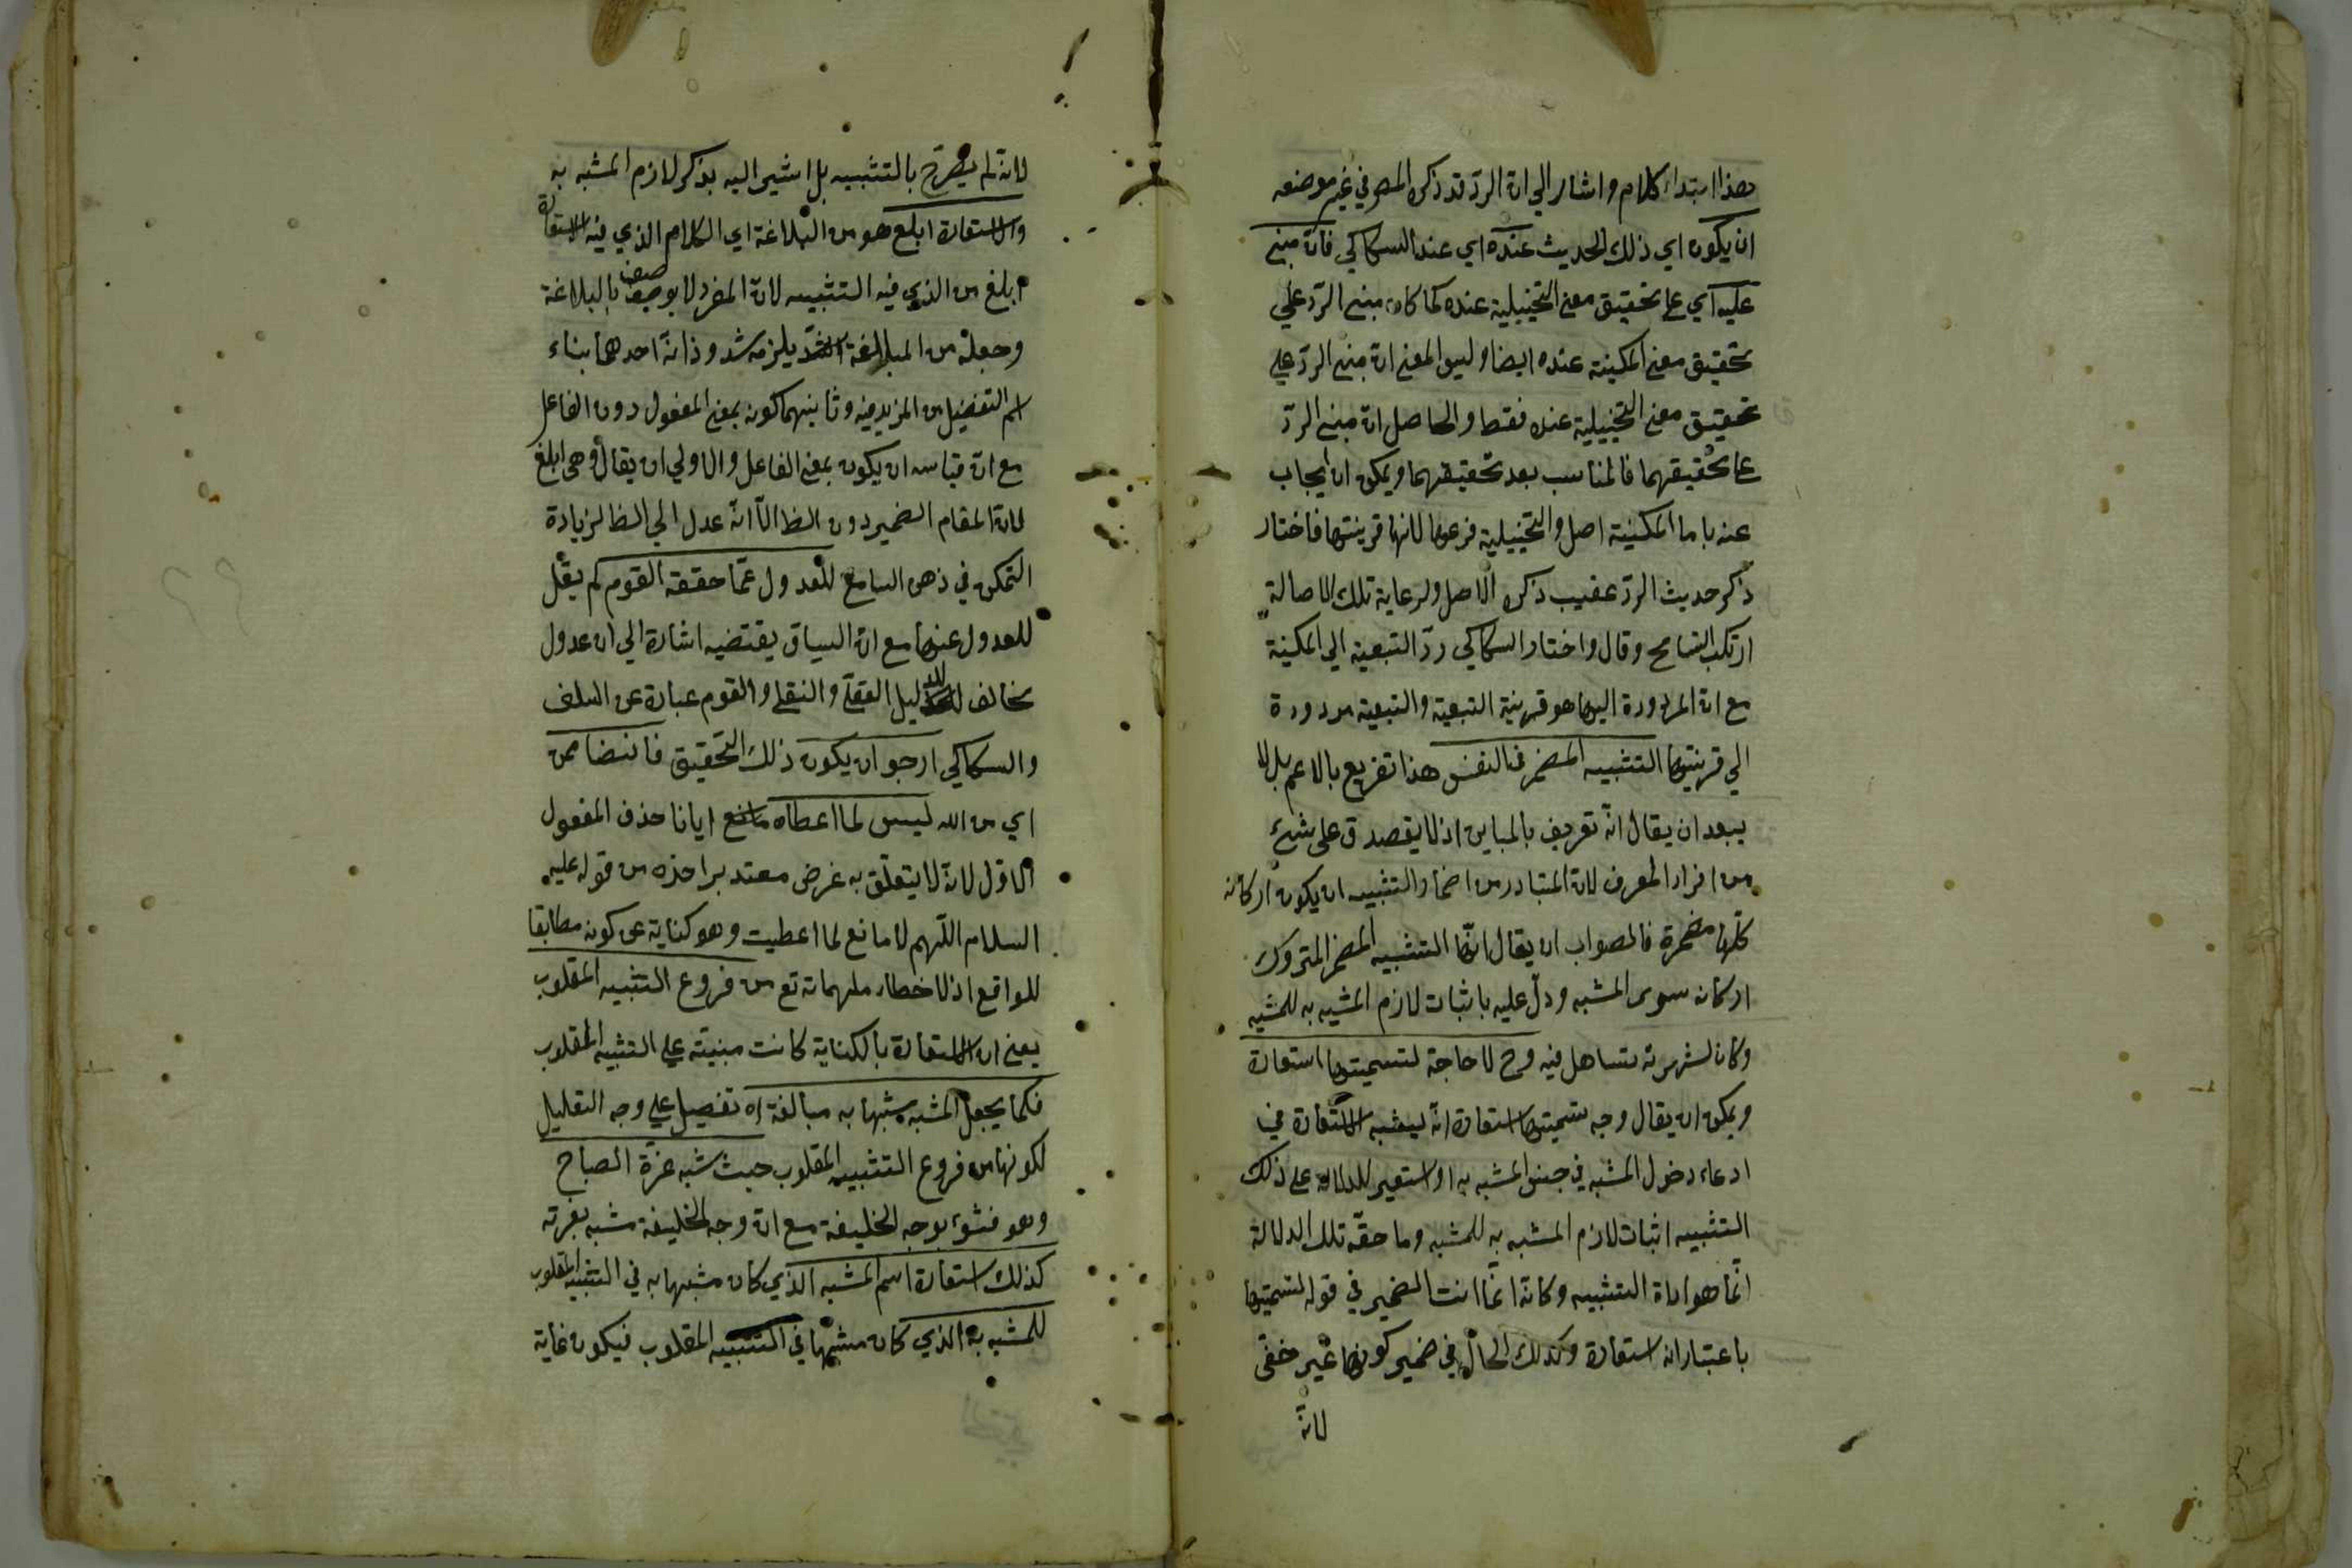 هذا ابتداء كلام واشار الي ان الرد قد ذكره المص في غير موضعه
ان يكون اي ذلك الحديث عنده اي عند السكاكي فان مبني
عليه اي علي تحقيق معني التخييلية عنده كما كان مبني الرد علي
تحقيق معني المكنية عنده ايضا وليس المعني ان مبني الرد علي
تحقيق معني التخييلية عنده فقط والحاصل ان مبني الرد
علي تحقيقهما فالمناسب بعد تحقيقهما ويمكن ان يجاب
عنه بان المكنية اصل والتخييلية فرعها لانها قرينتها فاختار
ذكر حديث الرد عقيب ذكره الاصل ولرعاية تلك الاصالة
ارتكب التسامح وقال واختار السكاكي رد التبعية الي المكنية
مع ان المردودة اليها هو قرينة التبعية والتبعية مردودة
الي قرينتها التشبيه المضمر في النفس هذا تفريع بالاعم بل لا
يبعد ان يقال انه تعريف بالمباين اذ لا يصدق علي شيء
من افراد المعرف لان المتبادر من اضمار التشبيه ان يكون اركانه
كلها مضمرة فالصواب ان يقال انها التشبيه المضمر المتروك
اركانه سوي المشبه ودل عليه باثبات لازم المشبه به للمشبه
وكان لشهرته تساهل فيه وح لا حاجة لتسميتها استعارة
ويمكن ان يقال وجه تسميتها استعارة انه ليشبه الاستعارة في
ادعاء دخول المشبه في جنس المشبه به او استعير للدلالة علي ذلك
التشبيه اثبات لازم المشبه به للمشبه وما حقه تلك الدلالة
انما هو اداة التشبيه وكانه انما انث الضمير في قوله لتسميتها
باعتبار انه استعارة وكذلك الحال في ضمير كونها غير خفي
لانه
لانه لم يصرح بالتشبيه بل اشير اليه بذكر لازم المشبه به
والاستعارة ابلغ هو من البلاغة اي الكلام الذي فيه الاستعارة
ابلغ من الذي فيه التشبيه لان المفرد لا يوصف بالبلاغة
وجعله من المبالغة يلزمه شذوذان احدهما بناء
اسم التفضيل من المزيد فيه وثانيهما كونه بمعني المفعول دون الفاعل
مع ان قياسه ان يكون بمعني الفاعل والاولي ان يقال وهي ابلغ
لان المقام الضمير دون الظ الا انه عدل الي الظ لزيادة
التمكن في ذهن السامع للعدول عما حققه القوم لم يقل
للعدول عنها مع ان السياق يقتضيه اشارة الي ان عدول
مخالف للدليل العقلي والنقلي والقوم عبارة عن السلف
والسكاكي ارجو ان يكون ذلك التحقيق فائضا من
اي من الله ليس لما اعطاه مانع ايانا حذف المفعول
الاول لانه لا يتعلق به غرض معتد به اخذه من قوله عليه
السلام اللهم لا مانع لما اعطيت وهو كناية عن كونه مطابقا
للواقع اذ لا خطاء ملهماته تع من فروع التشبيه المقلوب
يعني ان الاستعارة بالكناية كانت مبنية علي التشبيه المقلوب
فكما يجعل المشبه مشبها به مبالغة اه تفصيل علي وجه التعليل
لكونها من فروع التشبيه المقلوب حيث شبه غرة الصباح
وهو ضوئه بوجه الخليفة مع ان وجه الخليفة مشبه بغرته
كذلك استعارة اسم المشبه الذي كان مشبها به في التشبيه المقلوب
للمشبه به الذي كان مشبها في التشبيه المقلوب فيكون غاية